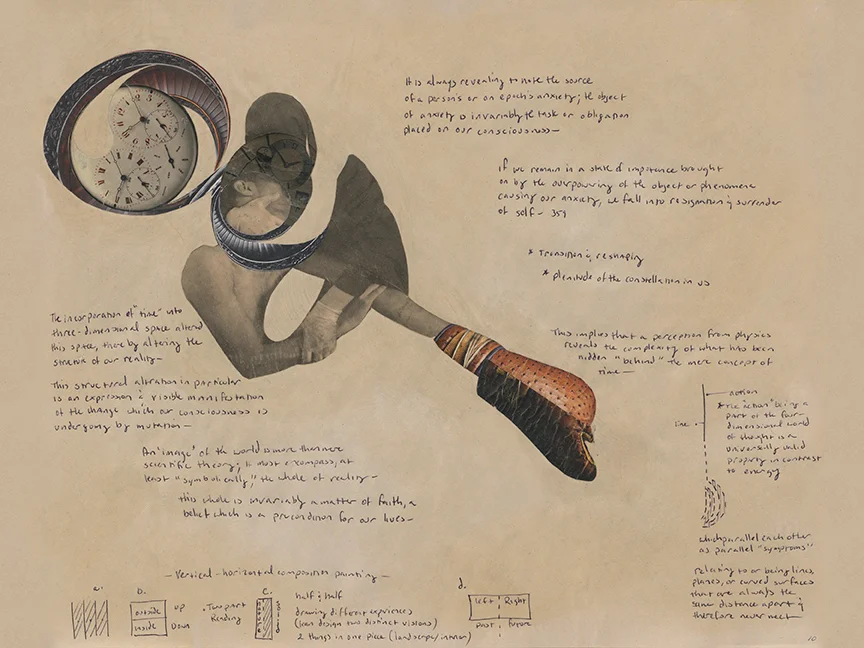 It is always revealing to note the source
of a person's or an epoch's anxiety; the object
of anxiety is invariably the task or obligation
placed on our consciousness—
If we remain in a state of impotence brought
on by the overpowering of the object or phenomena
causing our anxiety, we fall into resignation & surrender
of self - 359
* Transition & reshaping
* plenitude of the constellation in us
The incorporation of "time" into
three-dimensional space altered
this space, thereby altering the
structure of our reality—
This structural altration in particular
is an expression & visible manifestation
of the change which our consciousness is
undergoing by mutation—
An "image" of the world is more than mere
scientific theory; it must encompass, at
least "symbolically," the whole of reality—
this whole is invariably a matter of faith, a
belief which is a precondition for our lives—
This implies that a perception from physics
reveals the complexity of what has been
hidden "behind" the mere concept of
time—
action
* The "action" being a
part of the four-
dimensional world
of thought is a
universally valid
property in contrast
to energy
line
which parallel each other
as parallel "symptoms"
relating to or being lines,
planes, or curved surfaces
that are always the
same distance apart &
therefore never meet
—Vertical-horizontal composition painting—
a.
b.
outside
inside
up
Down
Two part
Reading
c.
half & half
drawing different experiences
(lens design two distinct visions)
2 things in one piece (landscape/interior)
d.
left
Right
past
future
10